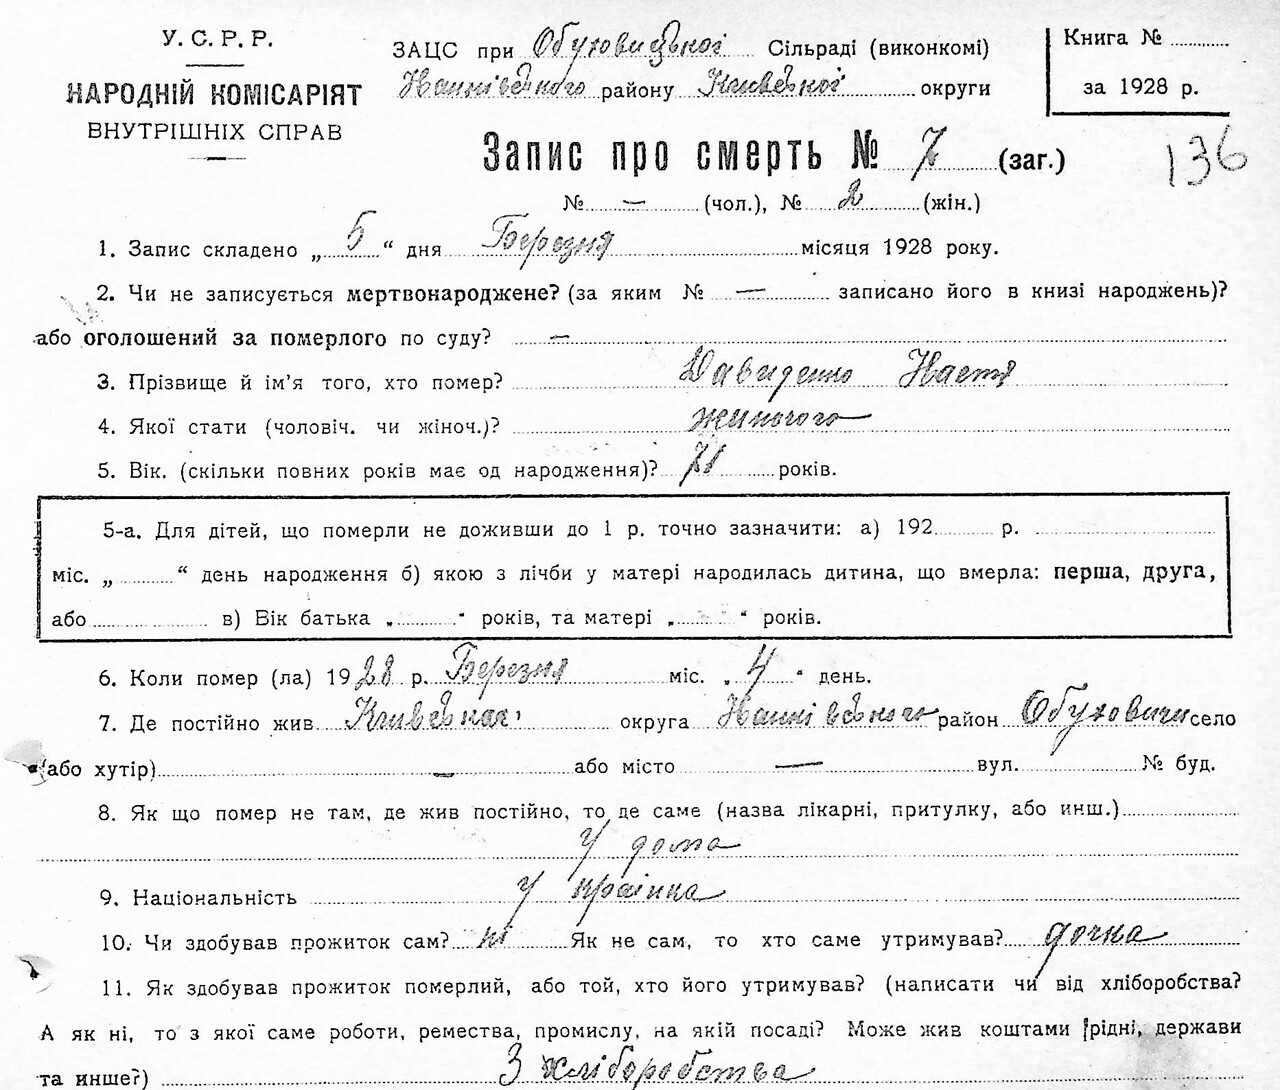 У. С. Р. Р.
НАРОДНІЙ КОМІСАРІЯТ
ВНУТРІШНІХ СПРАВ
ЗАЦС при Обуховицької Сільраді (виконкомі)
району Київської округи
Книга №
за 1928 р.
Запис про смерть № 7 (заг.)
136
№ — (чол.), № 2 (жін.)
1. Запис складено „ 5 “ дня Березня місяця 1928 року.
2. Чи не записується мертвонароджене? (за яким № — записано його в книзі народжень)?
або оголошений за померлого по суду? —
3. Прізвище й ім’я того, хто помер? Давиденко Настя
4. Якої стати (чоловіч. чи жіноч.)? жиночого
5. Вік. (скільки повних років має од народження)? років.
5-а. Для дітей, що померли не доживши до 1 р. точно зазначити: а) 192 р.
міс. „ “ день народження б) якою з лічби у матері народилась дитина, що вмерла: перша, друга,
або в) Вік батька „ “ років, та матері „ “ років.
6. Коли помер (ла) 1928 р. Березня міс. „ 4 “ день.
7. Де постійно жив Київська округа район Обуховичи село
(або хутір) — або місто — вул. № буд.
8. Як що помер не там, де жив постійно, то де саме (назва лікарні, притулку, або инш.)
У дома
9. Національність Украінка
10. Чи здобував прожиток сам? ні Як не сам, то хто саме утримував? дочка
11. Як здобував прожиток померлий, або той, хто його утримував? (написати чи від хліборобства?
А як ні, то з якої саме роботи, ремества, промислу, на якій посаді? Може жив коштами рідні, держави
та инше?) З хліборобства